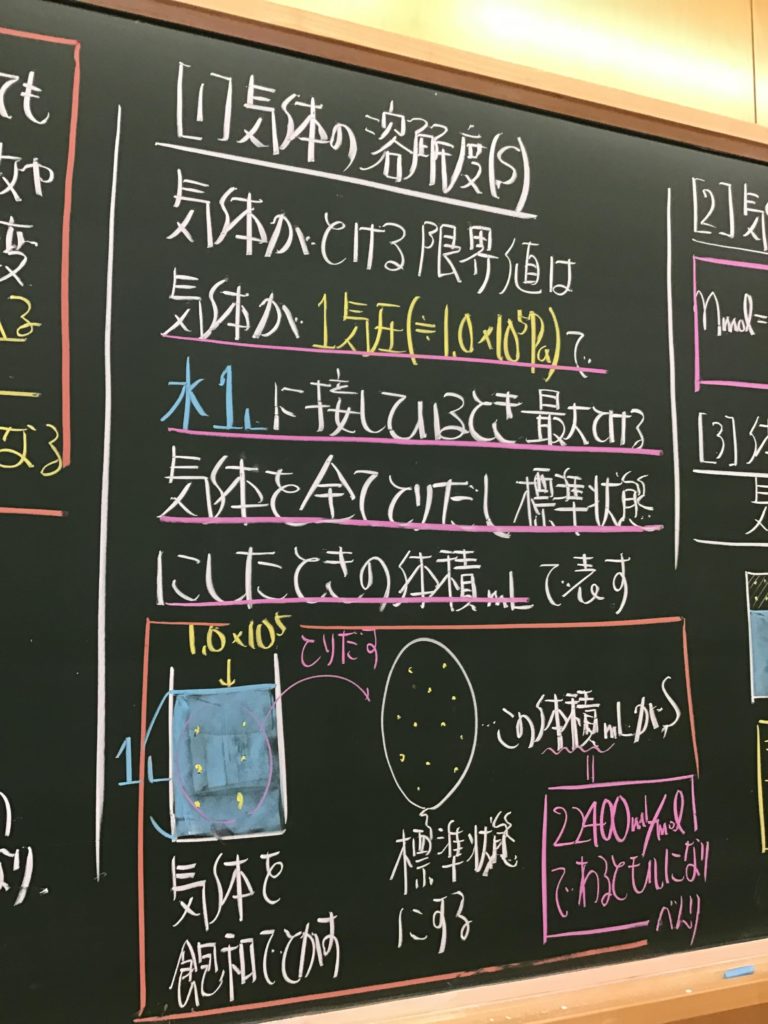 ても
変
なる
[1]気体の溶解度(S)
気体がとける限界値は
気体が1気圧(≒1.0×10⁵Pa)で
水1Lに接しているとき最大とける
気体を全てとりだし標準状態
にしたときの体積mLで表す
1.0×10⁵
とりだす
1L
この体積mLがS
=
22400mL/mol
でわるとmolになり
べんり
気体を
飽和でとかす
標準状態
にする
[2]気
nmol=
[3]体
気